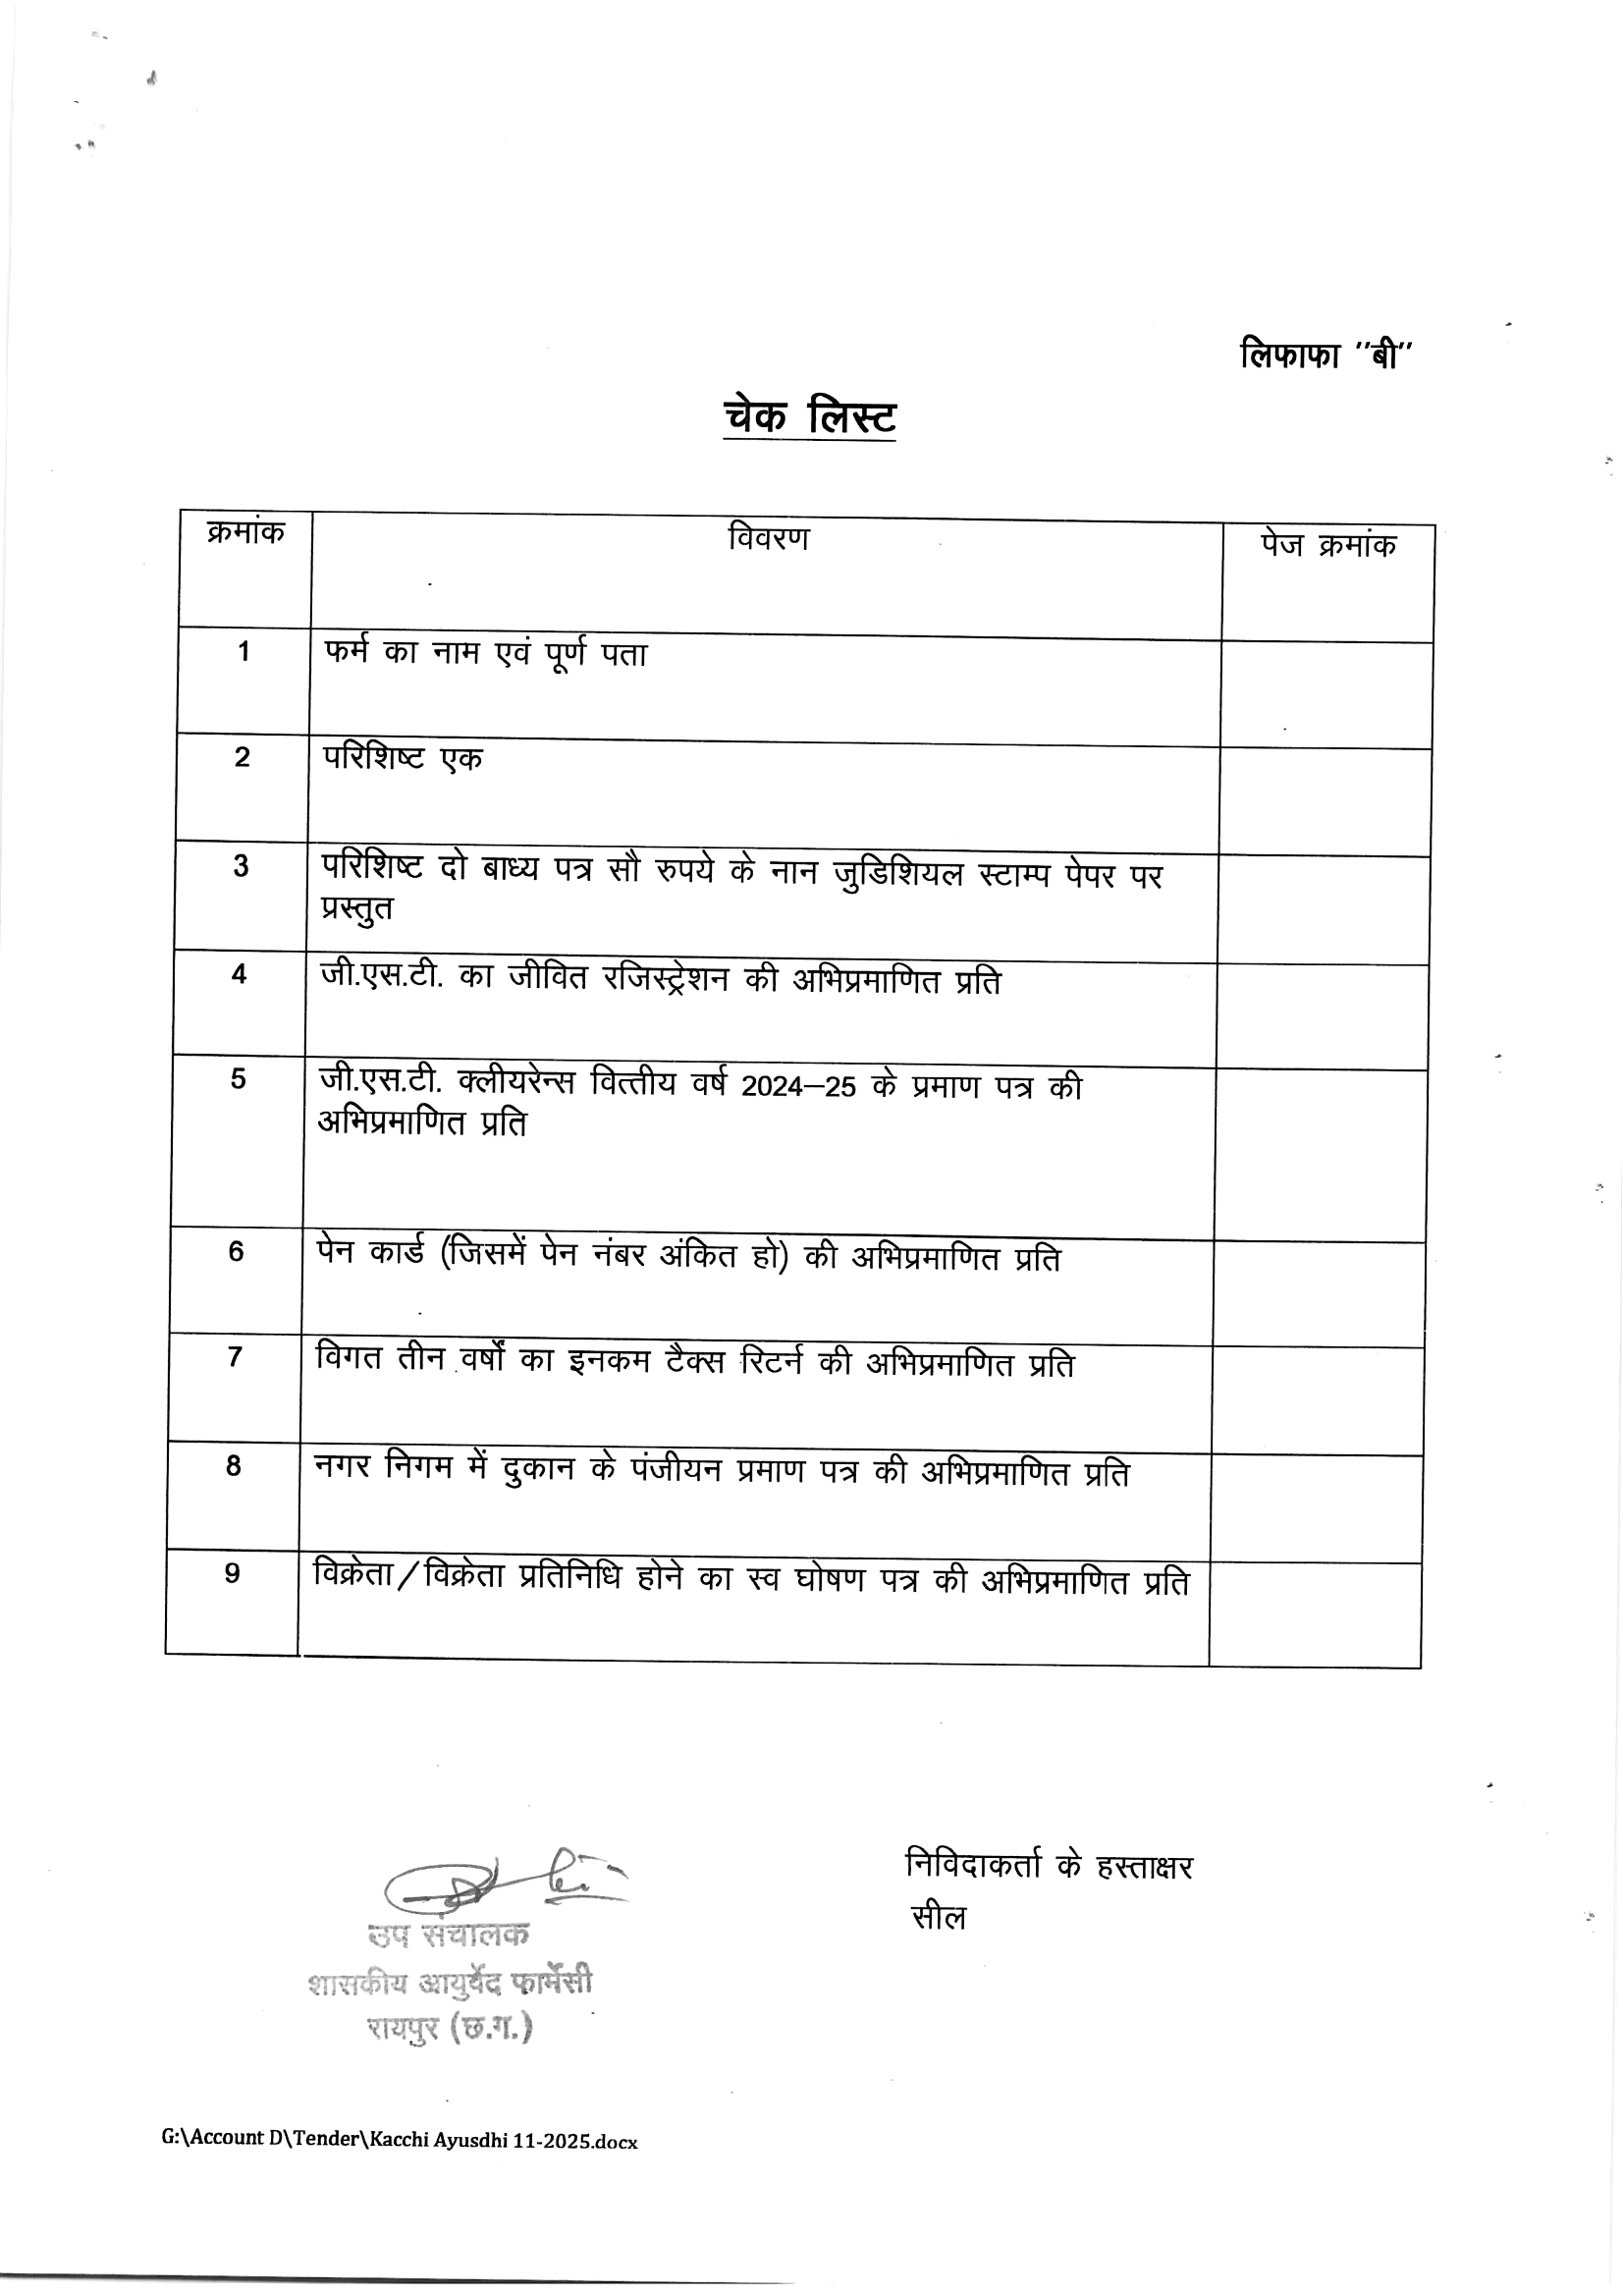 लिफाफा ”बी”
चेक लिस्ट
क्रमांक विवरण पेज क्रमांक
1 फर्म का नाम एवं पूर्ण पता
2 परिशिष्ट एक
3 परिशिष्ट दो बाध्य पत्र सौ रुपये के नान जुडिशियल स्टाम्प पेपर पर
प्रस्तुत
4 जी.एस.टी. का जीवित रजिस्ट्रेशन की अभिप्रमाणित प्रति
5 जी.एस.टी. क्लीयरेन्स वित्तीय वर्ष 2024–25 के प्रमाण पत्र की
अभिप्रमाणित प्रति
6 पेन कार्ड (जिसमें पेन नंबर अंकित हो) की अभिप्रमाणित प्रति
7 विगत तीन वर्षों का इनकम टैक्स रिटर्न की अभिप्रमाणित प्रति
8 नगर निगम में दुकान के पंजीयन प्रमाण पत्र की अभिप्रमाणित प्रति
9 विक्रेता/विक्रेता प्रतिनिधि होने का स्व घोषण पत्र की अभिप्रमाणित प्रति
निविदाकर्ता के हस्ताक्षर
सील
उप संचालक
शासकीय आयुर्वेद फार्मेसी
रायपुर (छ.ग.)
G:\Account D\Tender\Kacchi Ayusdhi 11-2025.docx